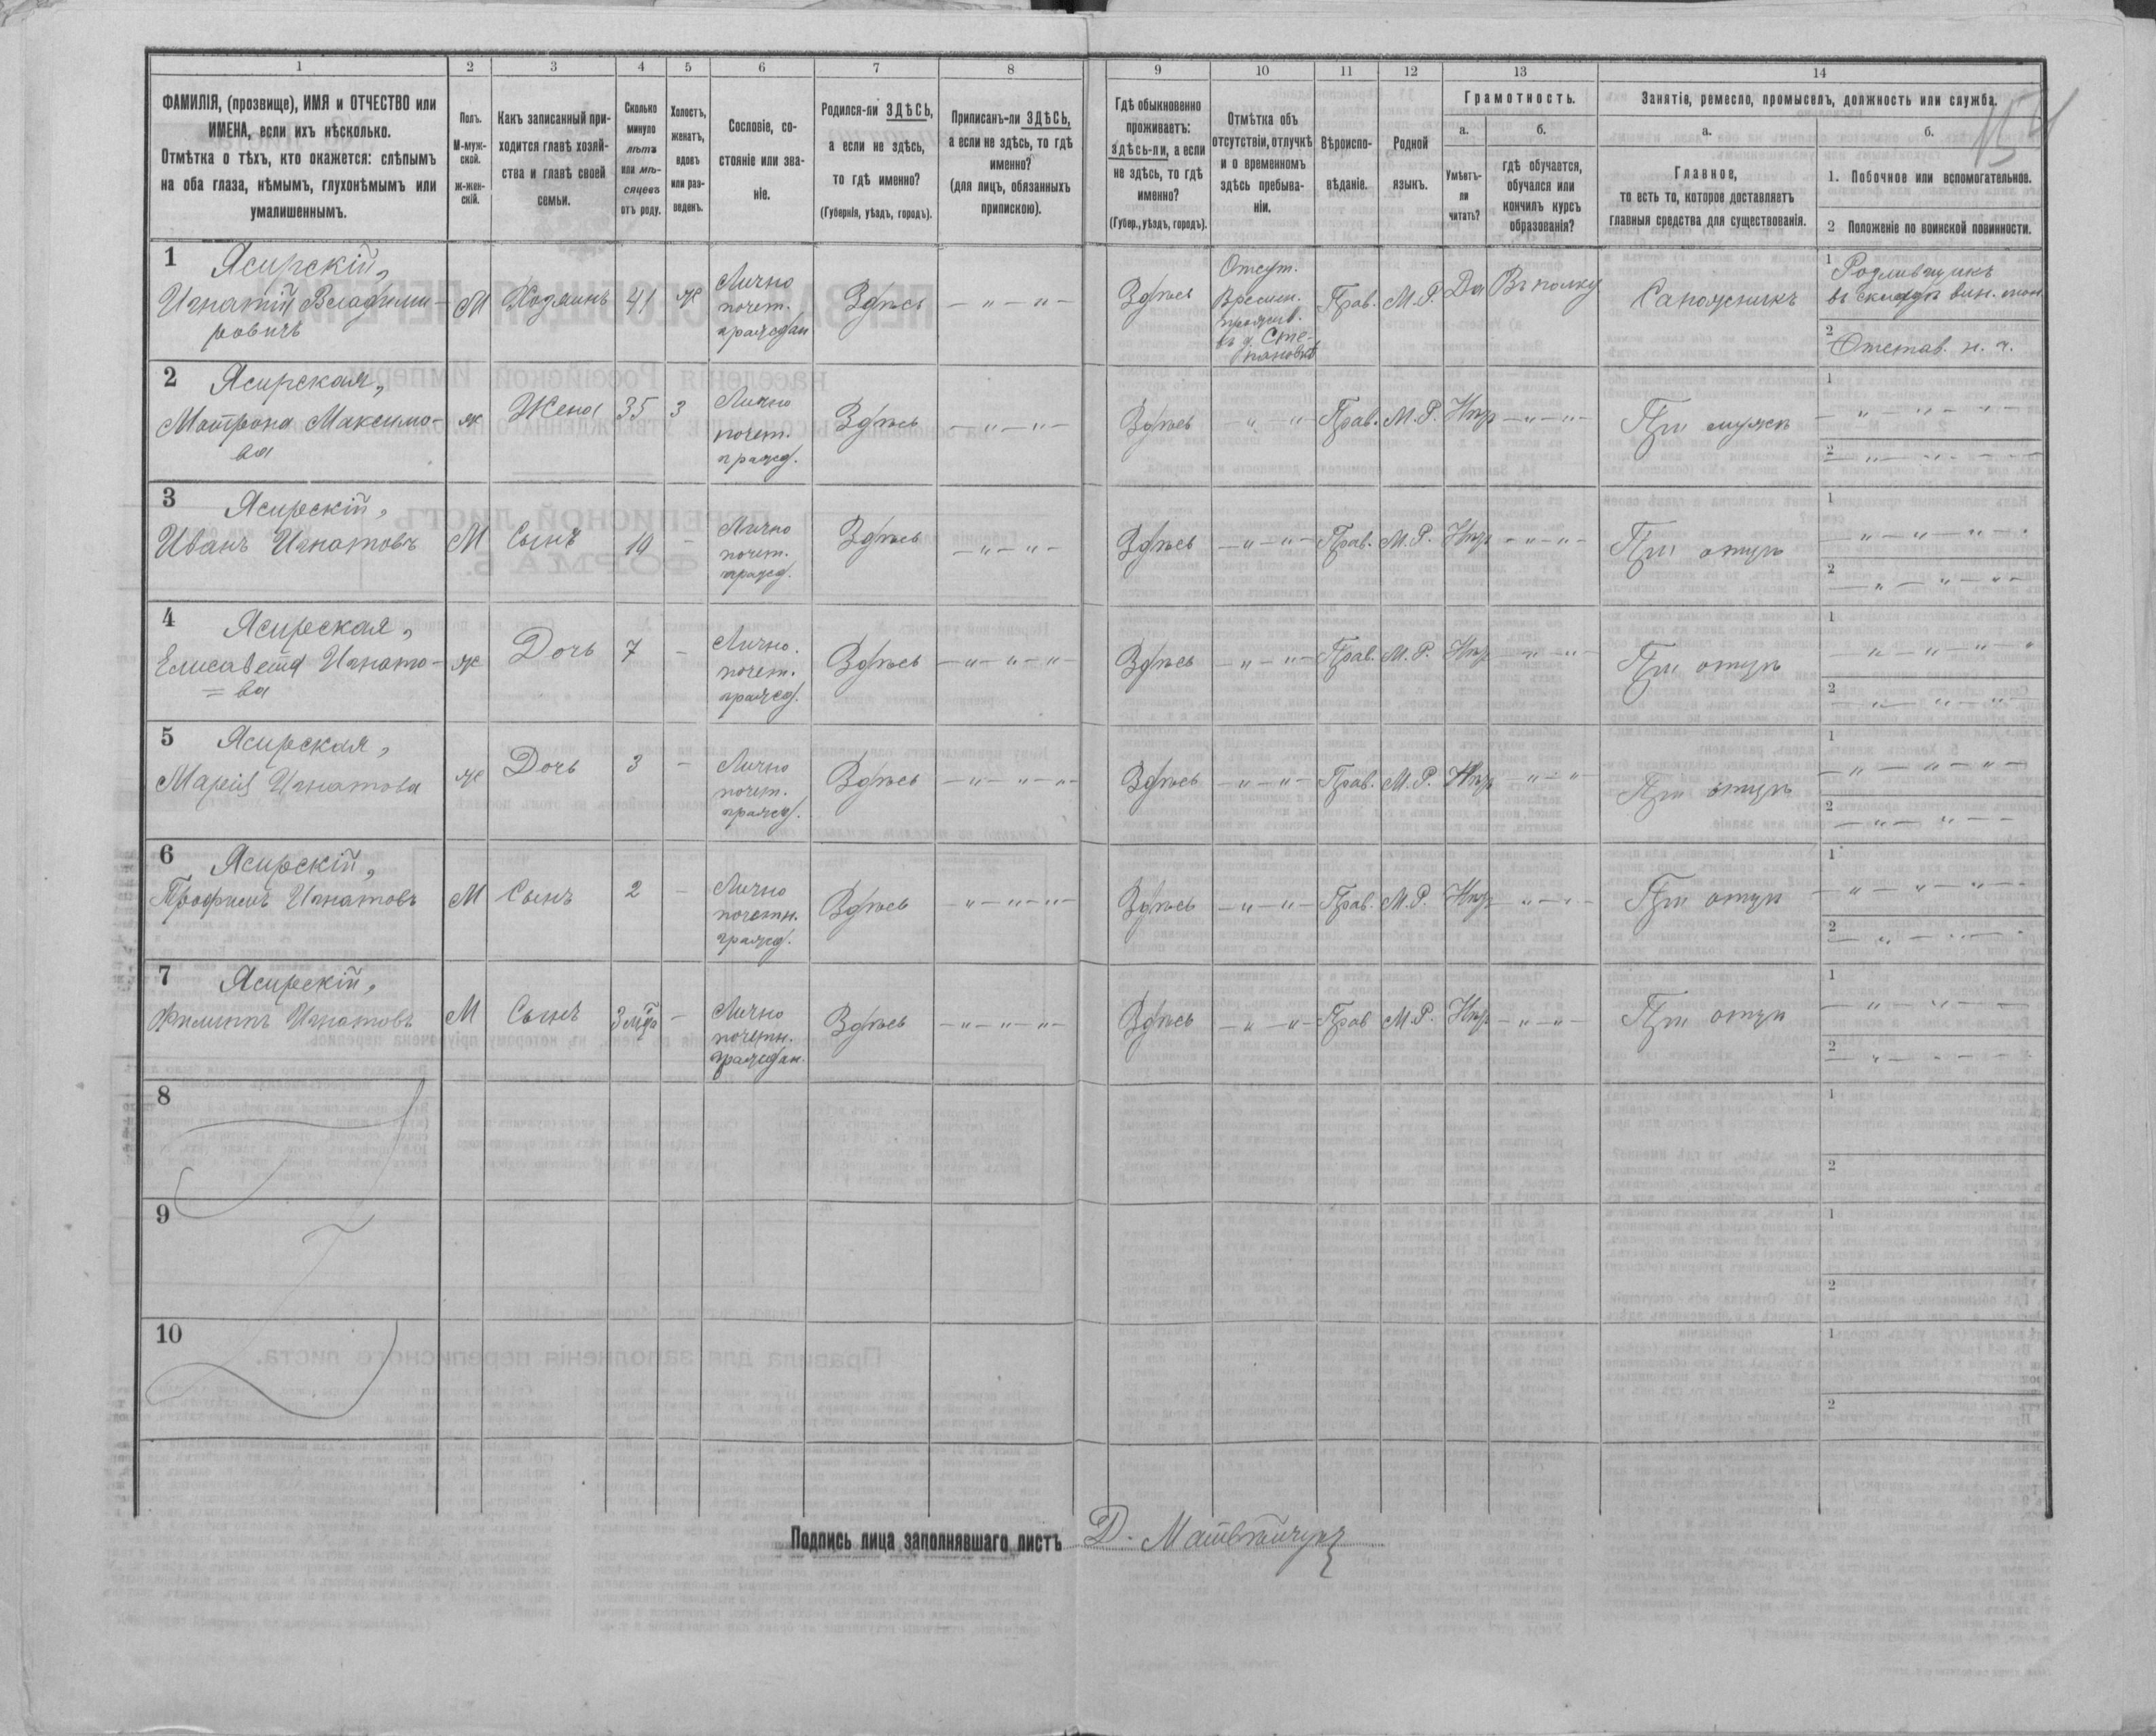 1 2 3 4 5 6 7 8 9 10 11 12 13 14
ФАМИЛІЯ, (прозвище), ИМЯ и ОТЧЕСТВО или
ИМЕНА, если ихъ нѣсколько.
Отмѣтка о тѣхъ, кто окажется: слѣпымъ
на оба глаза, нѣмымъ, глухонѣмымъ или
умалишеннымъ.
Полъ.
М-муж-
ской.
ж-жен-
скій.
Какъ записанный при-
ходится главѣ хозяй-
ства и главѣ своей
семьи.
Сколько
минуло
лѣтъ
или мѣ-
сяцевъ
отъ роду.
Холостъ,
женатъ,
вдовъ
или раз-
веденъ.
Сословіе, со-
стояніе или зва-
ніе.
Родился-ли ЗДѢСЬ,
а если не здѣсь,
то гдѣ именно?
(Губернія, уѣздъ, городъ).
Приписанъ-ли ЗДѢСЬ,
а если не здѣсь, то гдѣ
именно?
(для лицъ, обязанныхъ
припискою).
Гдѣ обыкновенно
проживаетъ:
здѣсь-ли, а если
не здѣсь, то гдѣ
именно?
(Губер., уѣздъ, городъ).
Отмѣтка объ
отсутствіи, отлучкѣ
и о временномъ
здѣсь пребыва-
ніи.
Вѣроиспо-
вѣданіе.
Родной
языкъ.
Грамотность.
а.
Умѣетъ-
ли
читать?
б.
гдѣ обучается,
обучался или
кончилъ курсъ
образованія?
Занятіе, ремесло, промыселъ, должность или служба.
а.
Главное,
то есть то, которое доставляетъ
главныя средства для существованія.
б.
1. Побочное или вспомогательное.
2 Положеніе по воинской повинности.
1
Ясирскій,
Игнатій Влафими-
ровичъ
М
Хозяинъ
41
ж
Лично
почет.
граждан
Здѣсь
— " — " —
Здѣсь
Отсут.
Времен.
прожив.
въ д. Сте-
пановкѣ
Прав.
М.Р.
Да
Въ полку
Сапожникъ
1
Розливщикъ
въ складѣ вин. мон.
2
Отстав. н. ч.
2
Ясирская,
Матрона Максимо-
ва
ж
Жена
35
З
Лично
почет.
гражд.
Здѣсь
— " — " —
Здѣсь
— " — " —
Прав.
М.Р.
Нѣт
— " — " —
При мужѣ
1
— " — " — " —
2
— " — " — " —
3
Ясирскій,
Иванъ Игнатовъ
М
Сынъ
—
Лично
почет.
гражд.
Здѣсь
— " — " —
Здѣсь
— " — " —
Прав.
М.Р.
Нѣт
— " — " —
При отцѣ
1
— " — " — " — "
2
— " — " — " —
4
Ясирская,
Елисавета Игнато-
= ва
ж
Дочь
7
—
Лично.
почет.
гражд.
Здѣсь
— " — " — " —
Здѣсь
— " — " —
Прав.
М.Р.
Нѣт
— " — " —
При отцѣ
1
— " — " — " — "
2
— " — " — " —
5
Ясирская,
Марія Игнатова
ж
Дочь
3
—
Лично
почет.
гражд.
Здѣсь
— " — " — " —
Здѣсь
— " — " —
Прав.
М.Р.
Нѣт
— " — "
При отцѣ
1
— " — " — " —
2
— " — " — —
6
Ясирскій,
Трофимъ Игнатовъ
М
Сынъ
2
—
Лично
почетн.
гражд.
Здѣсь
— " — " — " —
Здѣсь
— " — " —
Прав.
М.Р.
Нѣт
— " — " —
При отцѣ
1
— " — " — " —
2
— " — " — "
7
Ясирскій,
Филиппъ Игнатовъ
М
Сынъ
—
Лично
почетн.
граждан.
Здѣсь
— " — " — " —
Здѣсь
— " — " —
Прав
М.Р.
Нѣт
— " — " —
При отцѣ
1
— " — " — —
2
— " — " — —
8
1
2
9
1
2
10
1
2
Подпись лица заполнявшаго листъ Д. Матвѣйчукъ